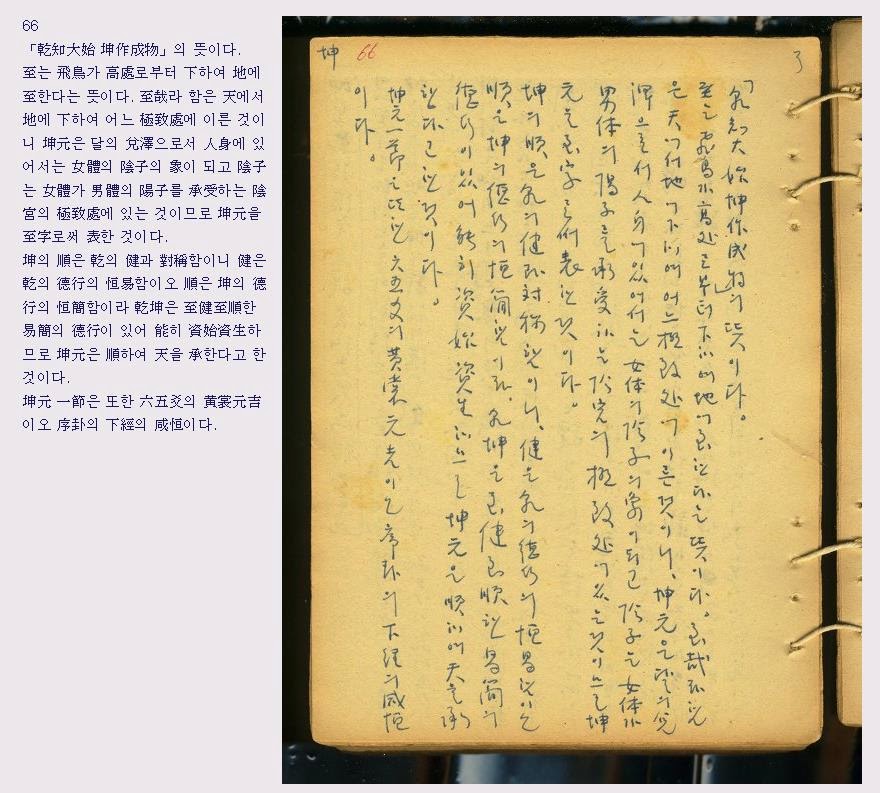 66
「乾知大始 坤作成物」의 뜻이다.
至는 飛鳥가 高處로부터 下하여 地에
至한다는 뜻이다. 至哉라 함은 天에서
地에 下하여 어느 極致處에 이른 것이
니 坤元은 달의 兌澤으로서 人身에 있
어서는 女體의 陰子의 象이 되고 陰子
는 女體가 男體의 陽子를 承受하는 陰
宮의 極致處에 있는 것이므로 坤元을
至字로써 表한 것이다.
坤의 順은 乾의 健과 對稱함이니 健은
乾의 德行의 恒易함이오 順은 坤의 德
行의 恒簡함이라 乾坤은 至健至順한
易簡의 德行이 있어 能히 資始資生하
므로 坤元은 順하여 天을 承한다고 한
것이다.
坤元 一節은 또한 六五爻의 黃裳元吉
이오 序卦의 下經의 咸恒이다.
坤 66
3
「乾知大始 坤作成物」의 뜻이다。
至는 飛鳥가 高処로부터 下하여 地에 至한다는 뜻이다。至哉라 함
은 天에서 地에 下하여 어느 極致処에 이른 것이니、坤元은 달의 兌
澤으로서 人身에 있어서는 女体의 陰子의 象이 되고 陰子는 女体가
男体의 陽子를 承受하는 陰宮의 極致処에 있는 것이므로 坤
元을 至字로써 表한 것이다。
坤의 順은 乾의 健과 対稱함이니、健은 乾의 德行의 恒易함이오
順은 坤의 德行의 恒簡함이라、乾坤은 至健至順한 易簡의
德行이 있어 能히 資始資生하므로 坤元은 順하여 天을 承
한다고 한 것이다。
坤元一節은 또한 六五爻의 黃裳元吉이오 序卦의 下経의 咸恒
이다。